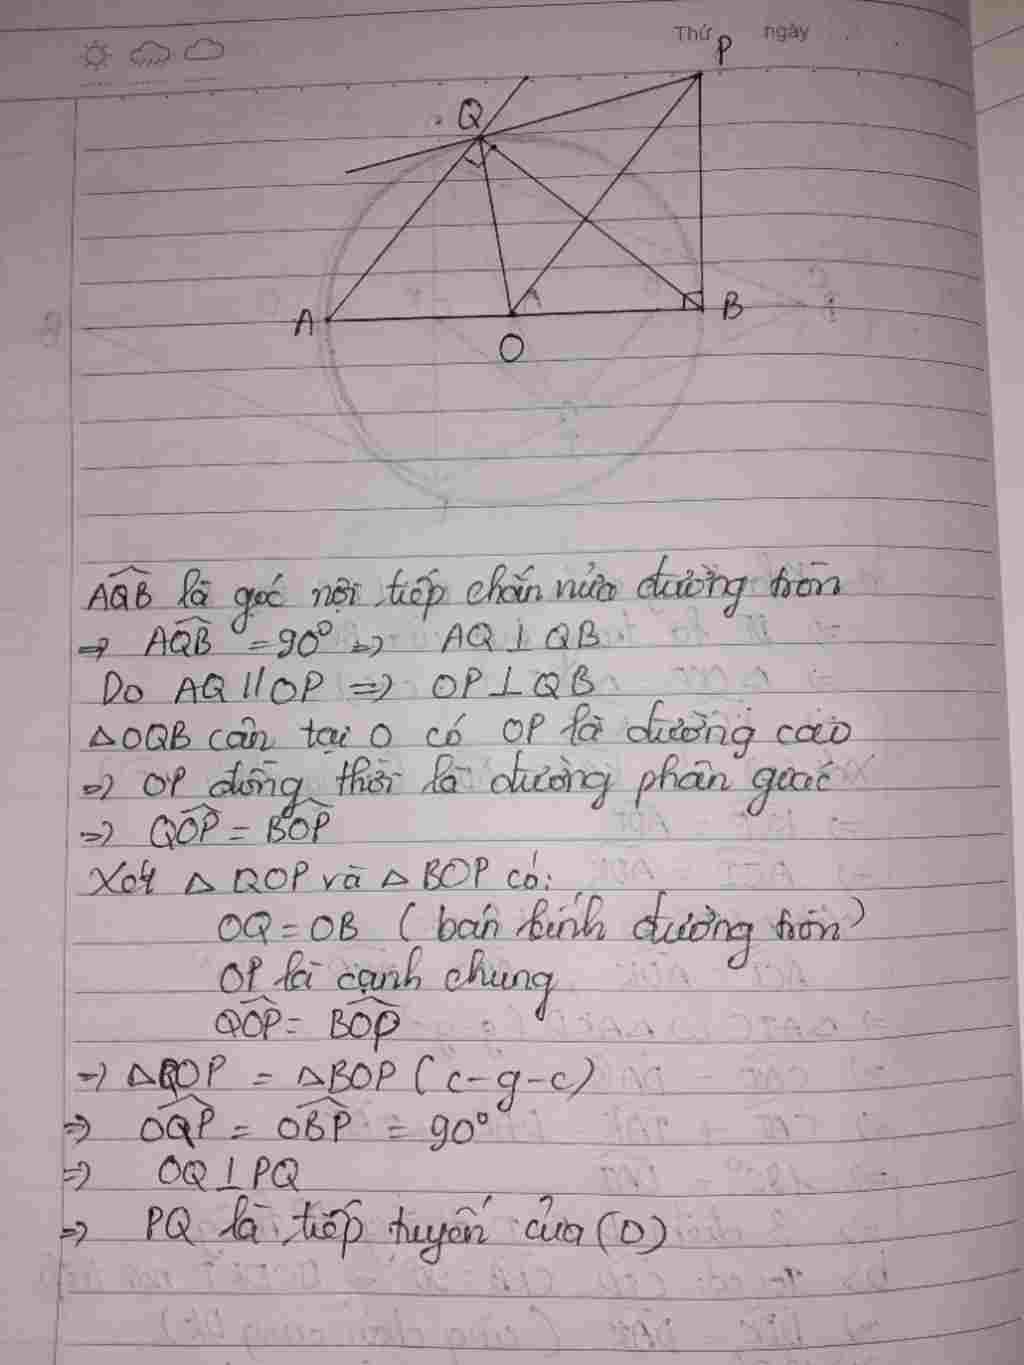 Thứ ngày
P
Q
A
B
O
AQB là góc nội tiếp chắn nửa đường tròn
=> AQB = 90° => AQ ⊥ QB
Do AQ // OP => OP ⊥ QB
△OQB cân tại O có OP là đường cao
=> OP đồng thời là đường phân giác
=> QOP = BOP
Xét △ QOP và △ BOP có:
OQ = OB ( bán kính đường tròn)
OP là cạnh chung
QOP = BOP
=> △QOP = △BOP ( c-g-c)
=> OQP = OBP = 90°
=> OQ ⊥ PQ
=> PQ là tiếp tuyến của (O)